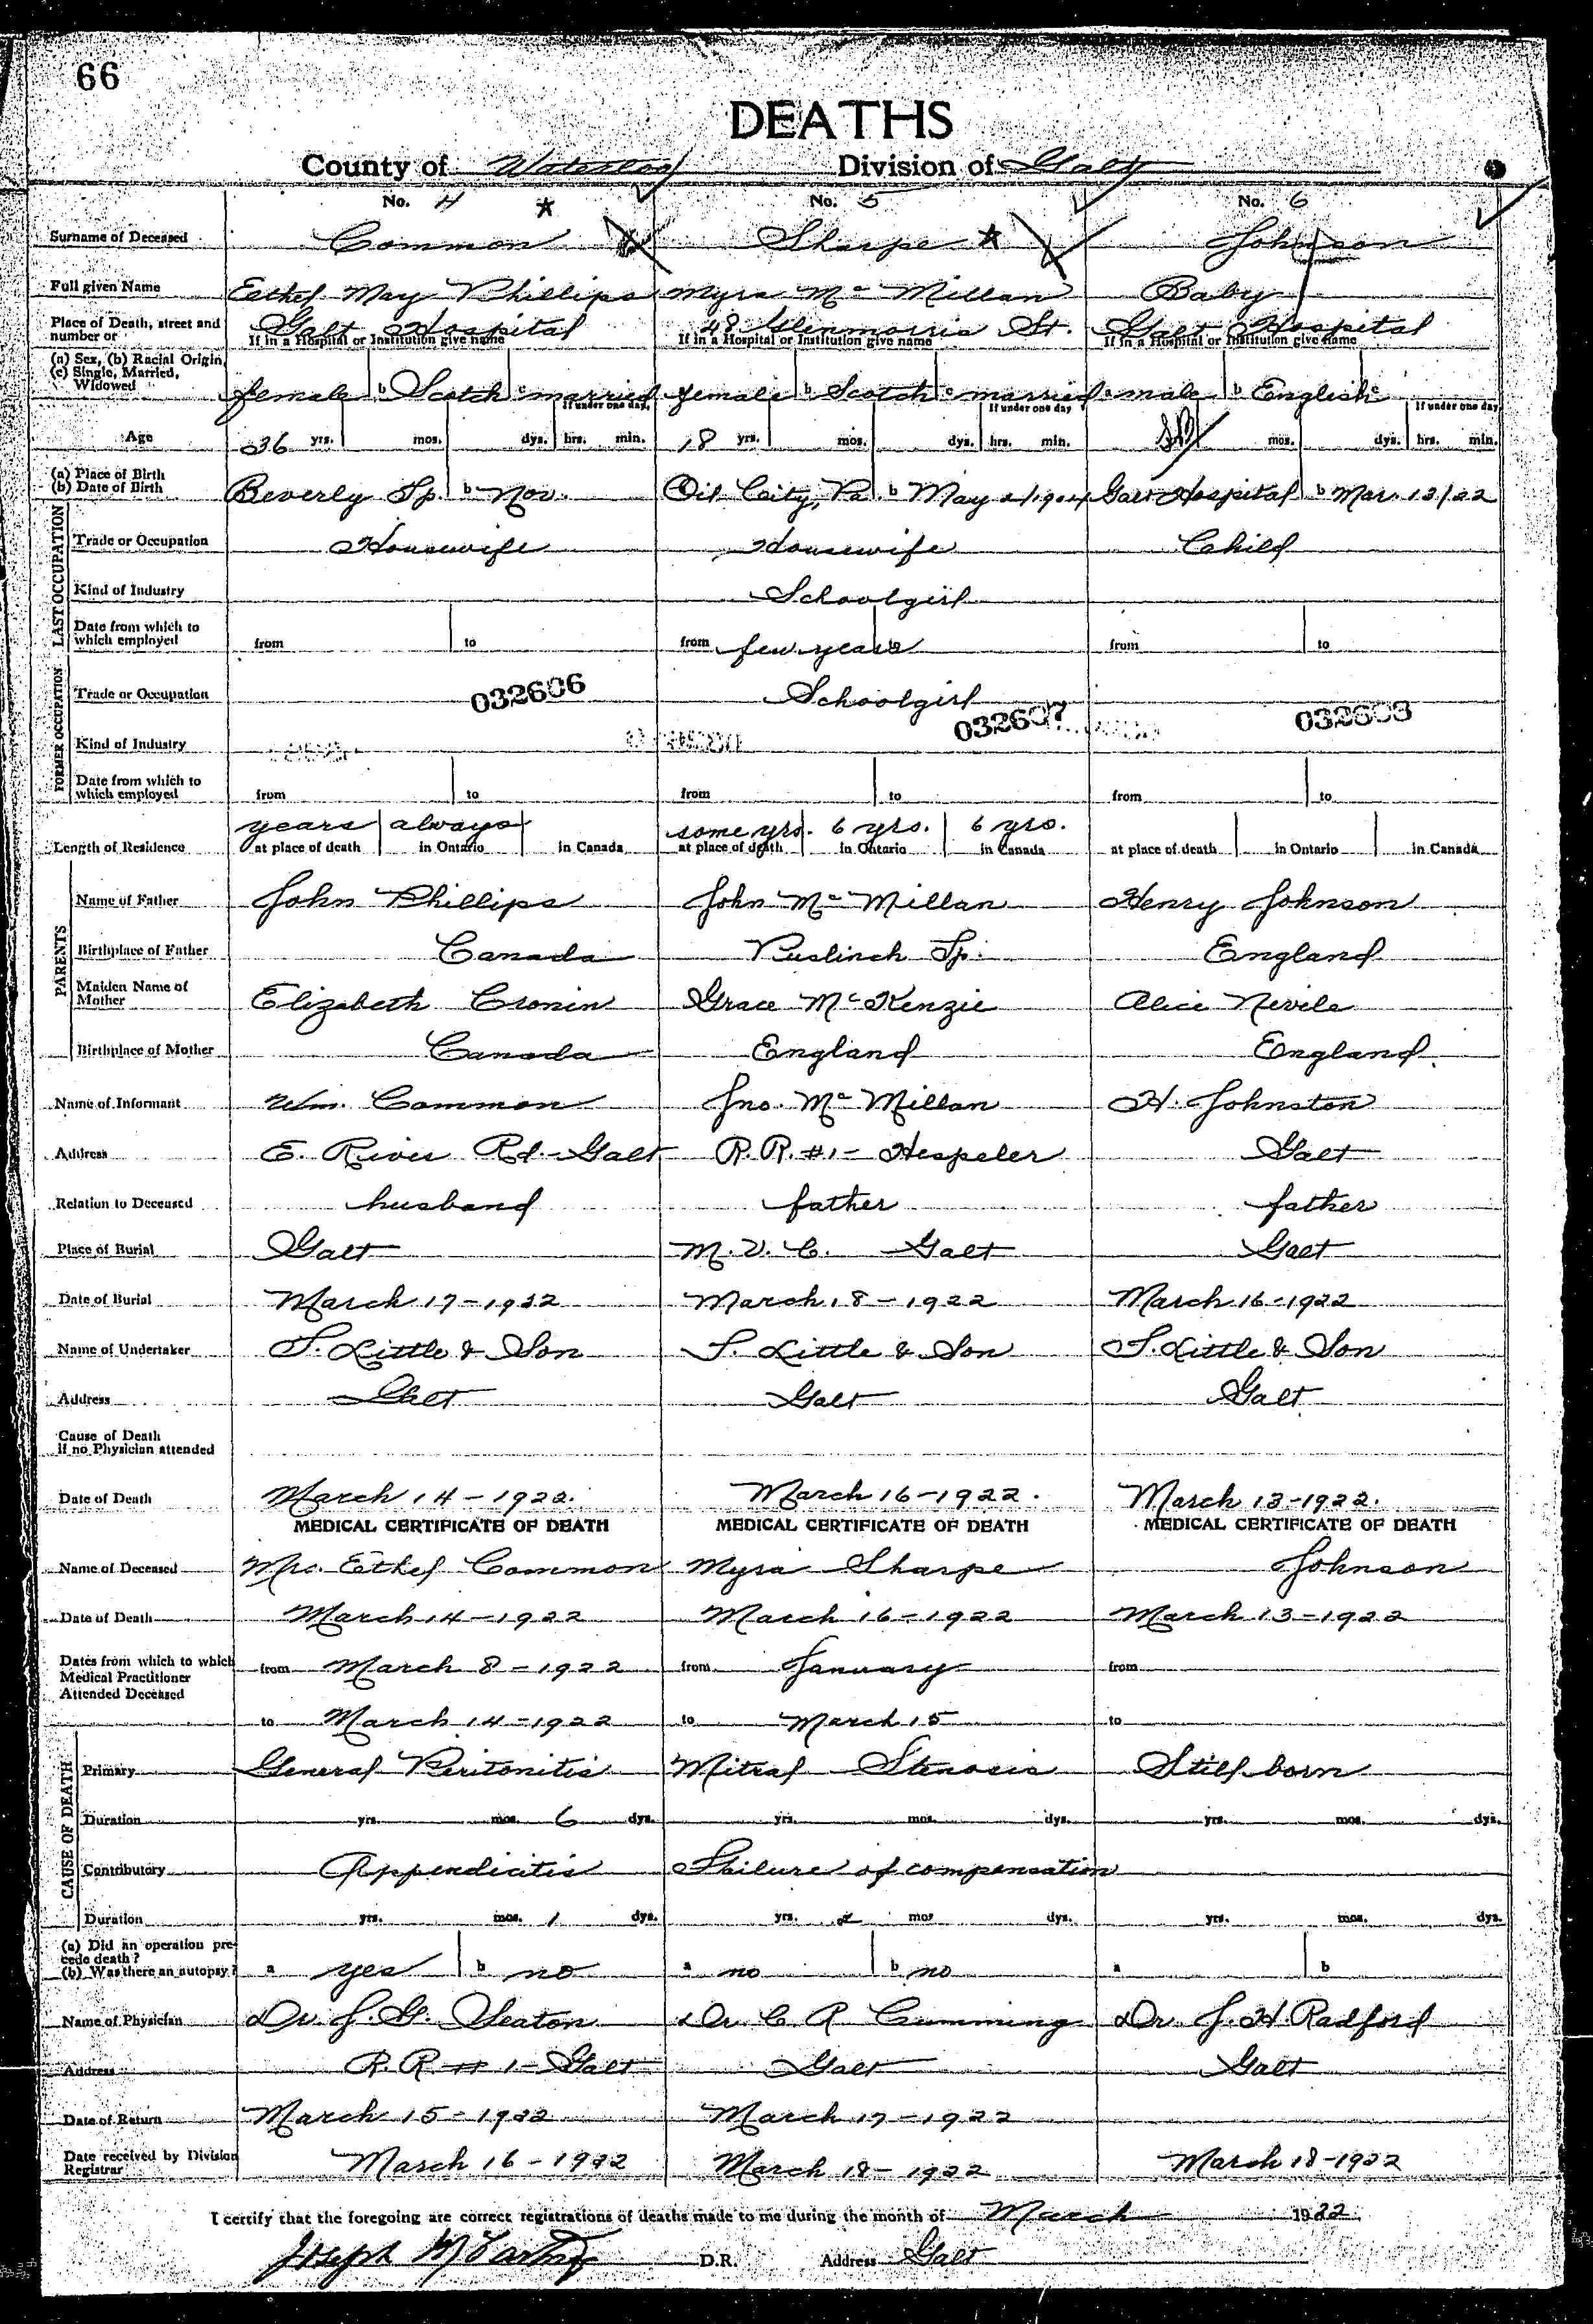 66
DEATHS
County of Waterloo Division of Galt
No. 4 No. 5 No. 6
Surname of Deceased Common Sharpe Johnson
Full given Name Ethel May Phillips Myra Mc Millan Baby
Place of Death, street and number or Galt Hospital 48 Glenmorris St. Galt Hospital
If in a Hospital or Institution give name If in a Hospital or Institution give name If in a Hospital or Institution give name
(a) Sex, (b) Racial Origin, (c) Single, Married, Widowed female b Scotch c married female b Scotch c married a male b English c
If under one day, If under one day If under one day
Age 36 yrs. mos. dys. hrs. min. 18 yrs. mos. dys. hrs. min. SB mos. dys. hrs. min.
(a) Place of Birth (b) Date of Birth Beverly Tp. b Nov. Oil City, Pa. b May 2/1904 Galt Hospital b Mar. 13/22
LAST OCCUPATION
Trade or Occupation Housewife Housewife Child
Kind of Industry Schoolgirl
Date from which to which employed from to from few years from to
FORMER OCCUPATION
Trade or Occupation 032606 Schoolgirl 032607 032608
Kind of Industry
Date from which to which employed from to from to from to
Length of Residence years at place of death always in Ontario in Canada some yrs. at place of death 6 yrs. in Ontario 6 yrs. in Canada at place of death in Ontario in Canada
PARENTS
Name of Father John Phillips John Mc Millan Henry Johnson
Birthplace of Father Canada Puslinch Tp. England
Maiden Name of Mother Elizabeth Cronin Grace McKenzie Alice Nevile
Birthplace of Mother Canada England England
Name of Informant Wm. Common Jno. Mc Millan H. Johnston
Address E. River Rd. - Galt R. R. #1 - Hespeler Galt
Relation to Deceased husband father father
Place of Burial Galt M. V. C. Galt Galt
Date of Burial March 17-1922 March 18-1922 March 16-1922
Name of Undertaker T. Little & Son T. Little & Son T. Little & Son
Address Galt Galt Galt
Cause of Death if no Physician attended
Date of Death March 14-1922. March 16-1922. March 13-1922.
MEDICAL CERTIFICATE OF DEATH MEDICAL CERTIFICATE OF DEATH MEDICAL CERTIFICATE OF DEATH
Name of Deceased Mrs. Ethel Common Myra Sharpe Johnson
Date of Death March 14-1922 March 16-1922 March 13-1922
Dates from which to which Medical Practitioner Attended Deceased from March 8-1922 from January from
to March 14-1922 to March 15 to
CAUSE OF DEATH
Primary General Peritonitis Mitral Stenosis Still born
Duration yrs. mos. 6 dys. yrs. mos. dys. yrs. mos. dys.
Contributory Appendicitis Failure of compensation
Duration yrs. mos. 1 dys. yrs. 2 mos dys. yrs. mos. dys.
(a) Did an operation precede death? (b) Was there an autopsy? a yes b no a no b no a b
Name of Physician Dr. J. G. Seaton Dr C R Cumming Dr. J. H. Radford
Address R. R. # 1 - Galt Galt Galt
Date of Return March 15-1922 March 17-1922
Date received by Division Registrar March 16-1922 March 18-1922 March 18-1922
I certify that the foregoing are correct registrations of deaths made to me during the month of March 1922.
Joseph McCartney D.R. Address Galt